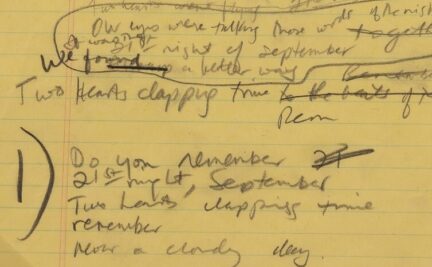 Two hearts were flying
Our eyes were talking those words of the nis
It was 21st night of September
We found a better way
Two Hearts clapping time to the beats of
Rem
1) Do you remember 21
21st night, September
Two hearts clapping time
remember
Never a cloudy day.